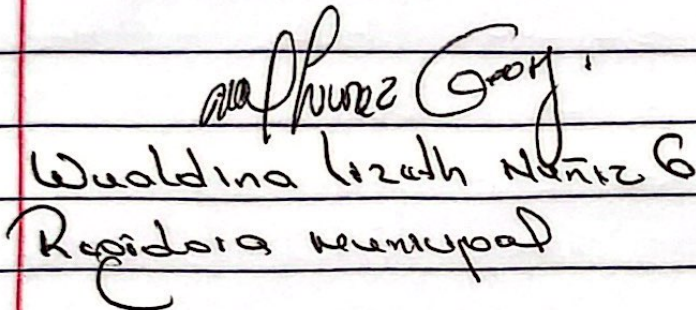 Nuñez
Wualdina lizeth Nuñez G
Regidora municipal